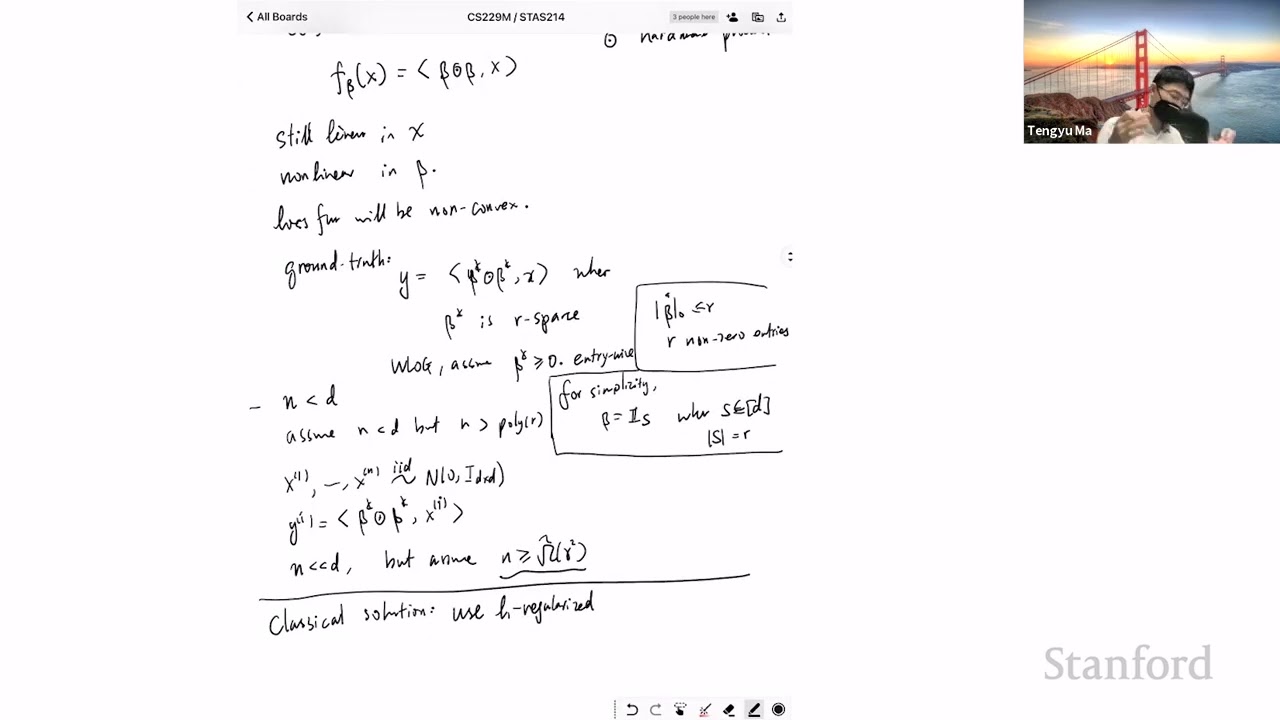 All Boards
CS229M / STAS214
3 people here
f_β(x) = ⟨ β⊙β, x ⟩
still linear in x
nonlinear in β.
loss fun will be non-convex.
ground-truth: y = ⟨ β*⊙β*, x ⟩ wher
β* is r-sparse
|β*|₀ ≤ r
r non-zero entries
WLOG, assume β* ≥ 0. entry-wise
for simplicity,
β = 𝟙_S wher S⊆[d]
|S| = r
– n < d
assume n < d but n > poly(r)
x⁽¹⁾, –, x⁽ⁿ⁾ iid ~ N(0, I_{d×d})
y⁽ⁱ⁾ = ⟨ β*⊙β*, x⁽ⁱ⁾ ⟩
n << d, but assume n ≥ Ω̃(r²)
Classical solution: use l₁-regularized
Tengyu Ma
Stanford